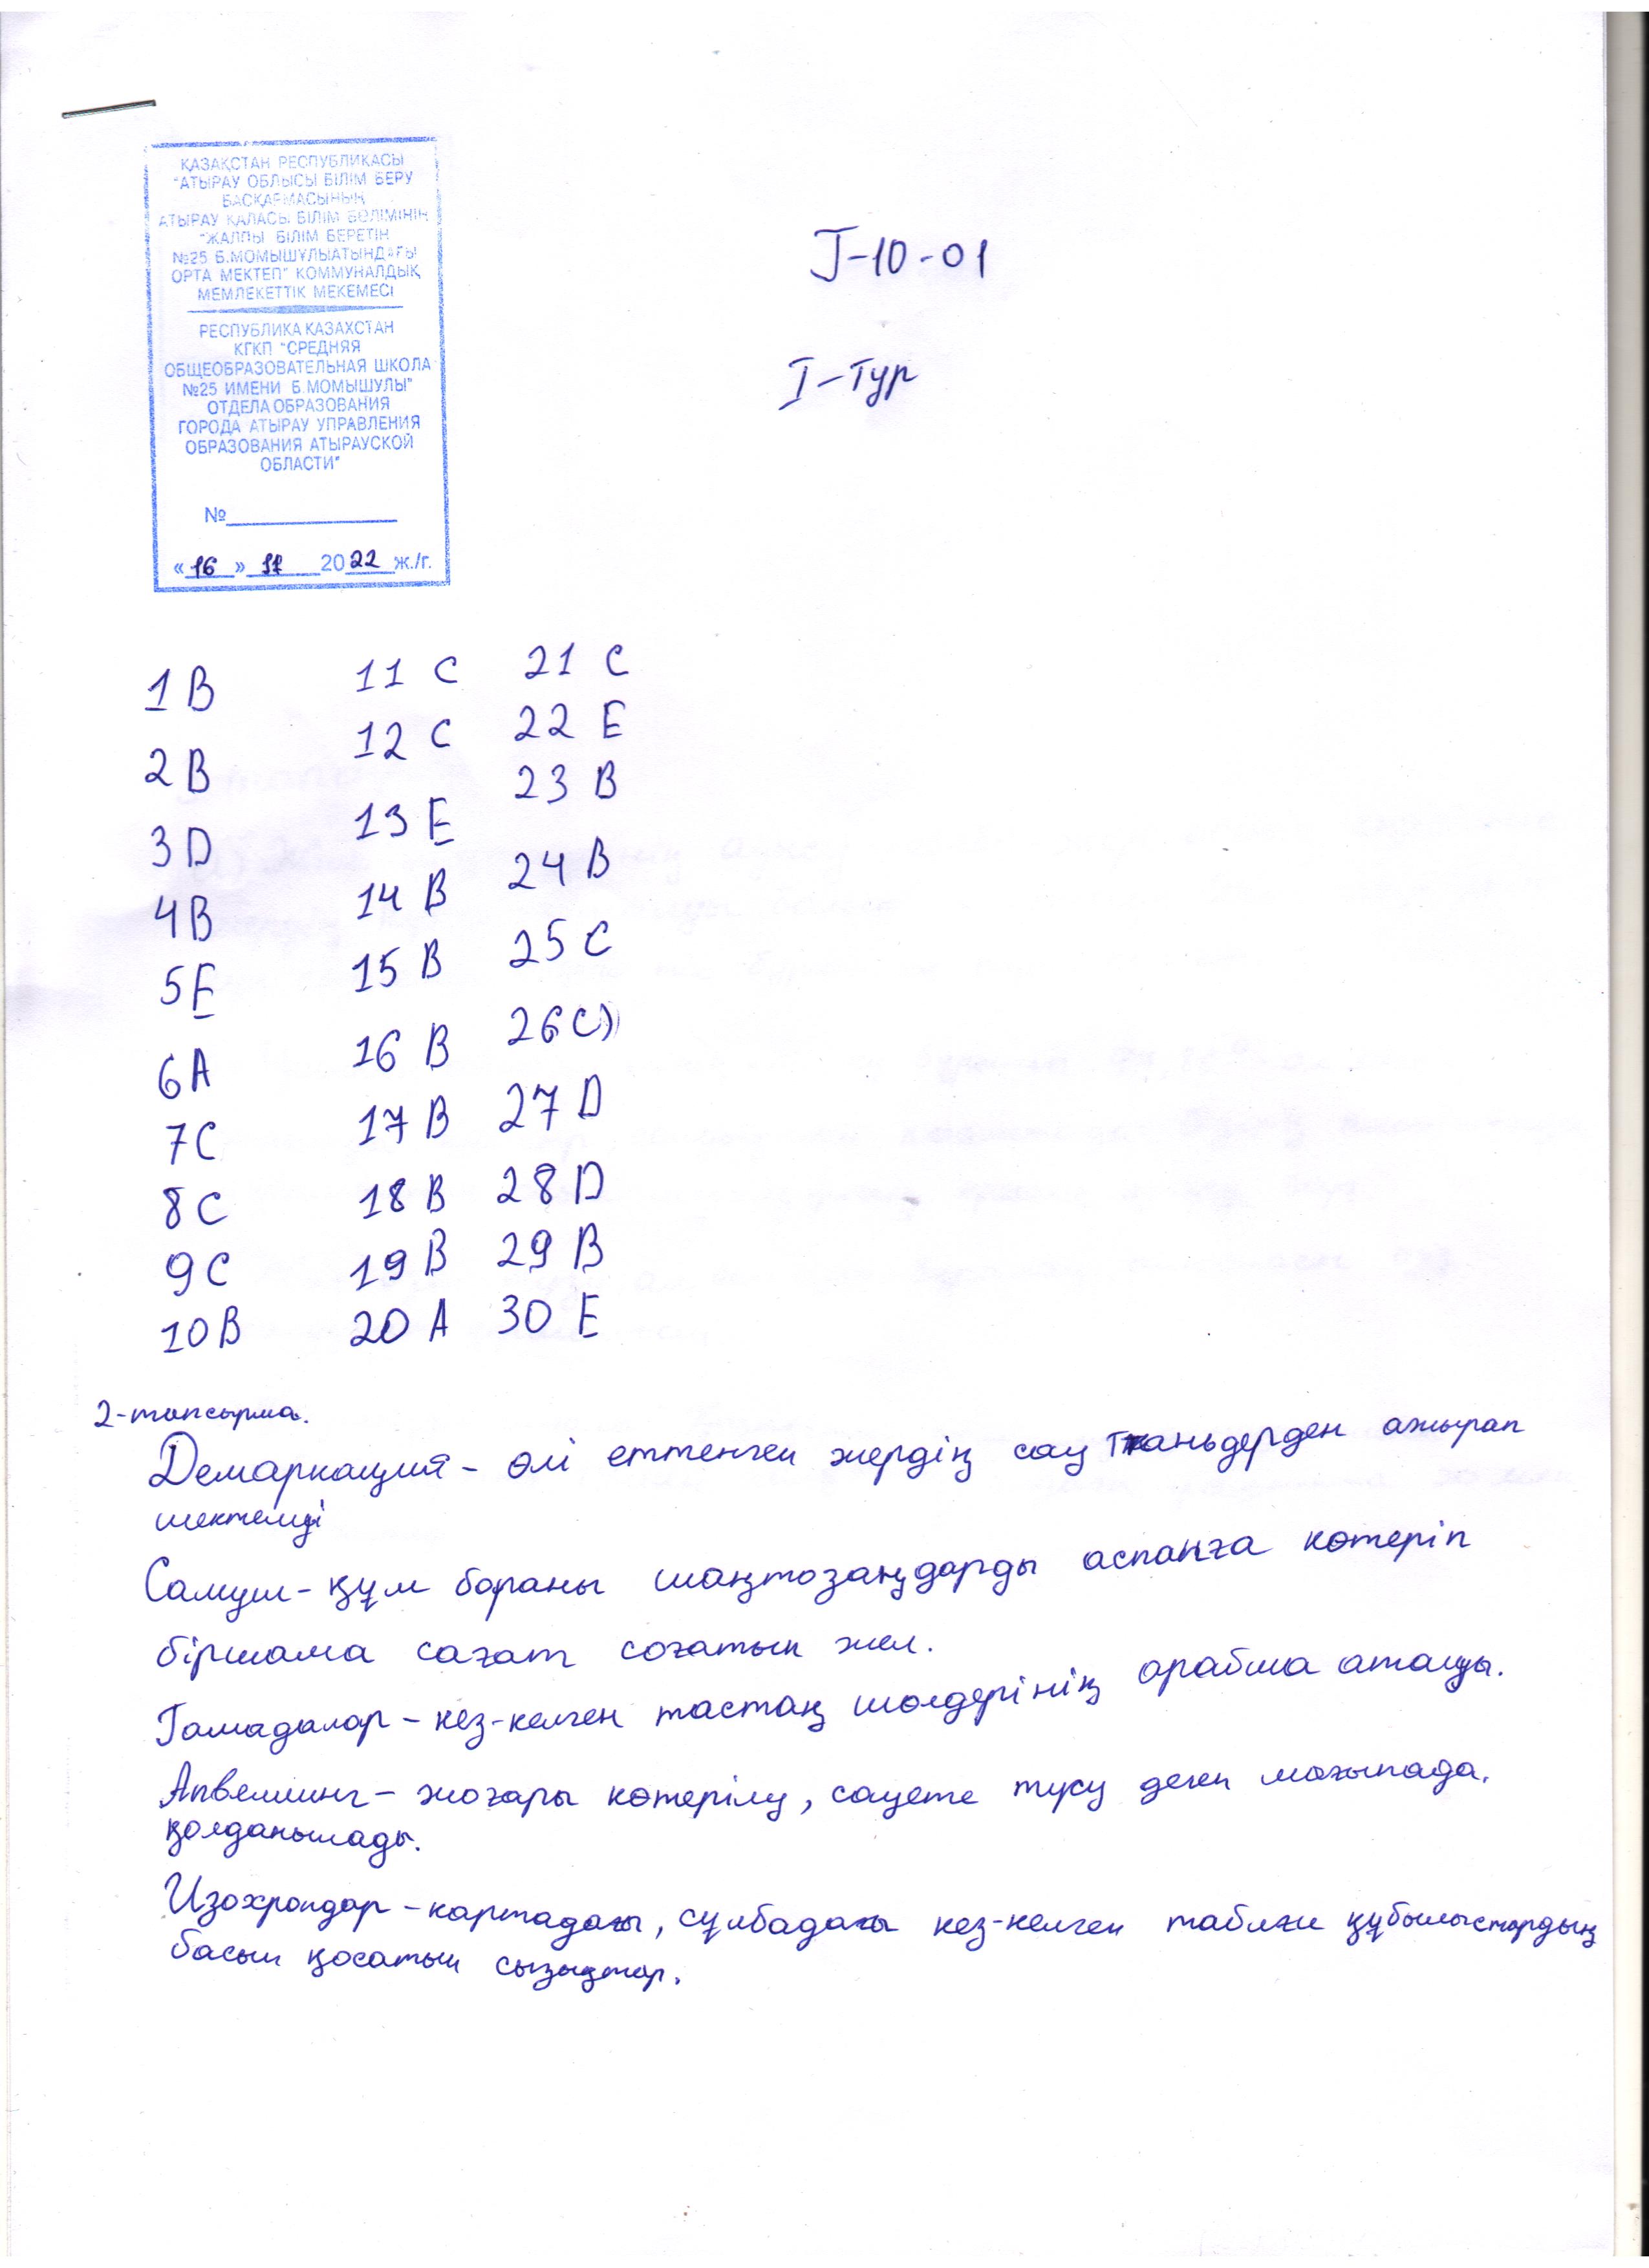 ҚАЗАҚСТАН РЕСПУБЛИКАСЫ
"АТЫРАУ ОБЛЫСЫ БІЛІМ БЕРУ
БАСҚАРМАСЫНЫҢ
АТЫРАУ ҚАЛАСЫ БІЛІМ БӨЛІМІНІҢ
"ЖАЛПЫ БІЛІМ БЕРЕТІН
№25 Б.МОМЫШҰЛЫАТЫНДАҒЫ
ОРТА МЕКТЕП" КОММУНАЛДЫҚ
МЕМЛЕКЕТТІК МЕКЕМЕСІ
РЕСПУБЛИКА КАЗАХСТАН
КГКП "СРЕДНЯЯ
ОБЩЕОБРАЗОВАТЕЛЬНАЯ ШКОЛА
№25 ИМЕНИ Б.МОМЫШУЛЫ"
ОТДЕЛА ОБРАЗОВАНИЯ
ГОРОДА АТЫРАУ УПРАВЛЕНИЯ
ОБРАЗОВАНИЯ АТЫРАУСКОЙ
ОБЛАСТИ"
№
«16» 11 2022 ж./г.
J-10-01
I-Тур
1 B
2 B
3 D
4 B
5 E
6 A
7 C
8 C
9 C
10 B
11 C
12 C
13 E
14 B
15 B
16 B
17 B
18 B
19 B
20 A
21 C
22 E
23 B
24 B
25 C
26 C)
27 D
28 D
29 B
30 E
2-тапсырма.
Демаркация - өлі еттенген жердің сау тканьдерден ажырап
шектелуі
Самум - құм бораны шаңтозаңдарды аспанға көтеріп
біршама сағат соғатын жел.
Гамадалар - кез-келген тастақ шөлдерінің арабша аталуы.
Апвеллинг - жоғары көтерілу, сәуете түсу деген мағынада.
қолданылады.
Изохрондар - картадағы, сұлбадағы кез-келген табиғи құбылыстардың
басын қосатын сызықтар.